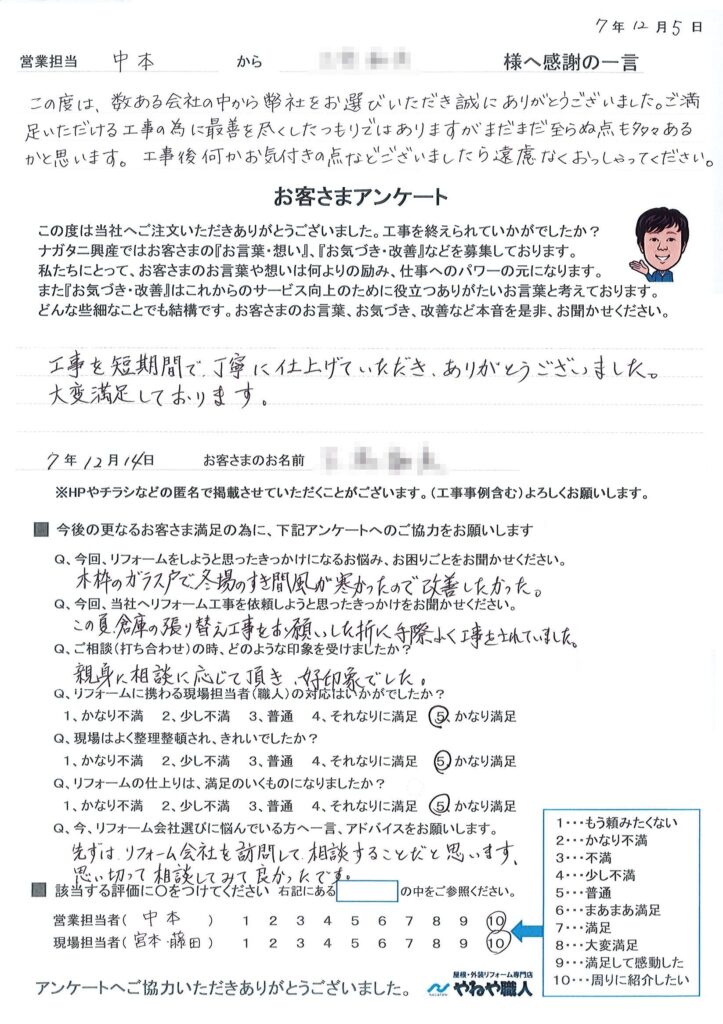 7年12月5日
営業担当 中本 から 様へ感謝の一言
この度は、数ある会社の中から弊社をお選びいただき誠にありがとうございました。ご満
足いただける工事の為に最善を尽くしたつもりではありますがまだまだ至らぬ点も多々ある
かと思います。工事後何かお気付きの点などございましたら遠慮なくおっしゃってください。
お客さまアンケート
この度は当社へご注文いただきありがとうございました。工事を終えられていかがでしたか？
ナガタニ興産ではお客さまの『お言葉・想い』、『お気づき・改善』などを募集しております。
私たちにとって、お客さまのお言葉や想いは何よりの励み、仕事へのパワーの元になります。
また『お気づき・改善』はこれからのサービス向上のために役立つありがたいお言葉と考えております。
どんな些細なことでも結構です。お客さまのお言葉、お気づき、改善など本音を是非、お聞かせください。
工事を短期間で、丁寧に仕上げていただき、ありがとうございました。
大変満足しております。
7年12月14日 お客さまのお名前
※HPやチラシなどの匿名で掲載させていただくことがございます。（工事事例含む）よろしくお願いします。
■ 今後の更なるお客さま満足の為に、下記アンケートへのご協力をお願いします
Q、今回、リフォームをしようと思ったきっかけになるお悩み、お困りごとをお聞かせください。
木枠のガラス戸で冬場のすき間風が寒かったので改善したかった。
Q、今回、当社へリフォーム工事を依頼しようと思ったきっかけをお聞かせください。
この夏、倉庫の張り替え工事をお願いした折に手際よく工事をされていました。
Q、ご相談（打ち合わせ）の時、どのような印象を受けましたか？
親身に相談に応じて頂き、好印象でした。
Q、リフォームに携わる現場担当者（職人）の対応はいかがでしたか？
1、かなり不満 2、少し不満 3、普通 4、それなりに満足 5、かなり満足
Q、現場はよく整理整頓され、きれいでしたか？
1、かなり不満 2、少し不満 3、普通 4、それなりに満足 5、かなり満足
Q、リフォームの仕上りは、満足のいくものになりましたか？
1、かなり不満 2、少し不満 3、普通 4、それなりに満足 5、かなり満足
Q、今、リフォーム会社選びに悩んでいる方へ一言、アドバイスをお願いします。
先ずは、リフォーム会社を訪問して相談することだと思います、
思い切って相談してみて良かったです。
■ 該当する評価に○をつけてください 右記にある の中をご参照ください。
営業担当者（中本） 1 2 3 4 5 6 7 8 9 10
現場担当者（宮本・藤田） 1 2 3 4 5 6 7 8 9 10
1・・・もう頼みたくない
2・・・かなり不満
3・・・不満
4・・・少し不満
5・・・普通
6・・・まあまあ満足
7・・・満足
8・・・大変満足
9・・・満足して感動した
10・・・周りに紹介したい
アンケートへご協力いただきありがとうございました。
屋根・外装リフォーム専門店
やねや職人